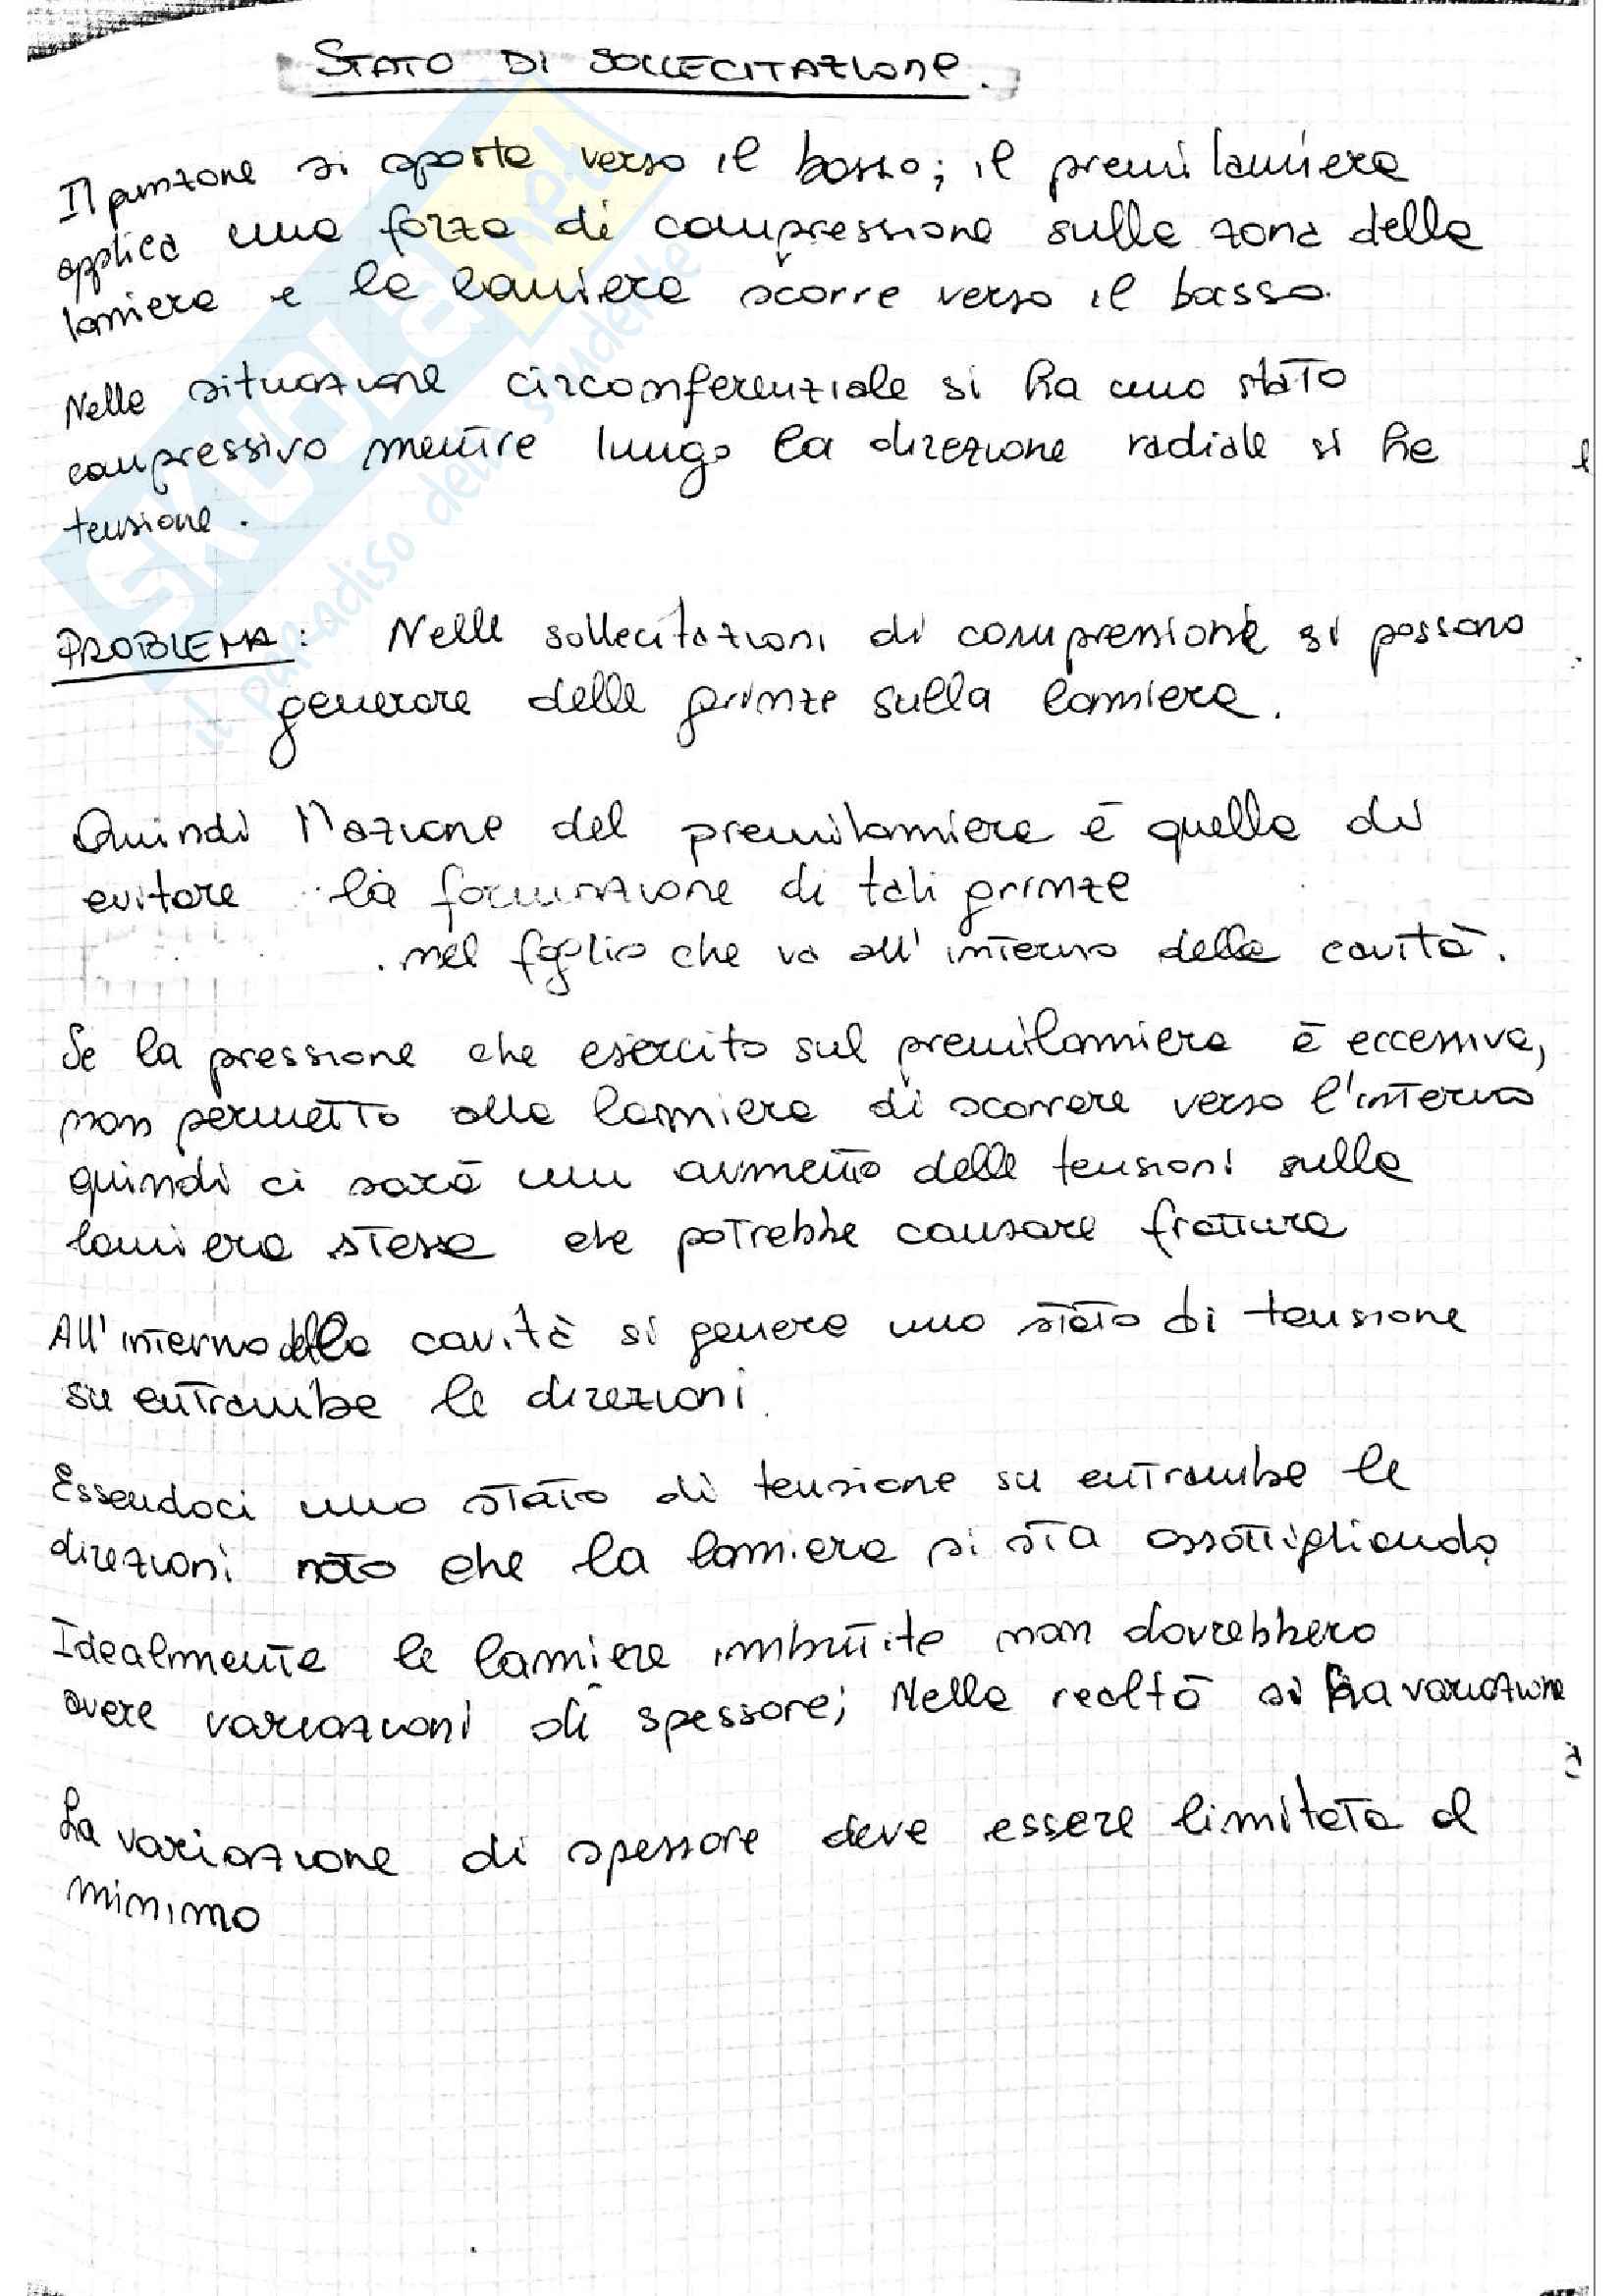 STATO DI SOLLECITAZIONE.
Il punzone si sposta verso il basso; il premilamiera
applica una forza di compressione sulla zona della
lamiera e la lamiera scorre verso il basso.
Nella situazione circonferenziale si ha uno stato
compressivo mentre lungo la direzione radiale si ha
tensione.
PROBLEMA: Nelle sollecitazioni di compressione si possono
generare delle grinze sulla lamiera.
Quindi l'azione del premilamiera è quella di
evitare la formazione di tali grinze
nel foglio che va all'interno della cavità.
Se la pressione che esercito sul premilamiera è eccessiva,
non permetto alla lamiera di scorrere verso l'interno
quindi ci sarà un aumento delle tensioni sulla
lamiera stessa che potrebbe causare frattura
All'interno della cavità si genera uno stato di tensione
su entrambe le direzioni.
Essendoci uno stato di tensione su entrambe le
direzioni noto che la lamiera si sta assottigliando
Idealmente le lamiere imbutite non dovrebbero
avere variazioni di spessore; Nella realtà si ha variazione
La variazione di spessore deve essere limitata al
minimo
SKUOLA.net
il paradiso dello studente